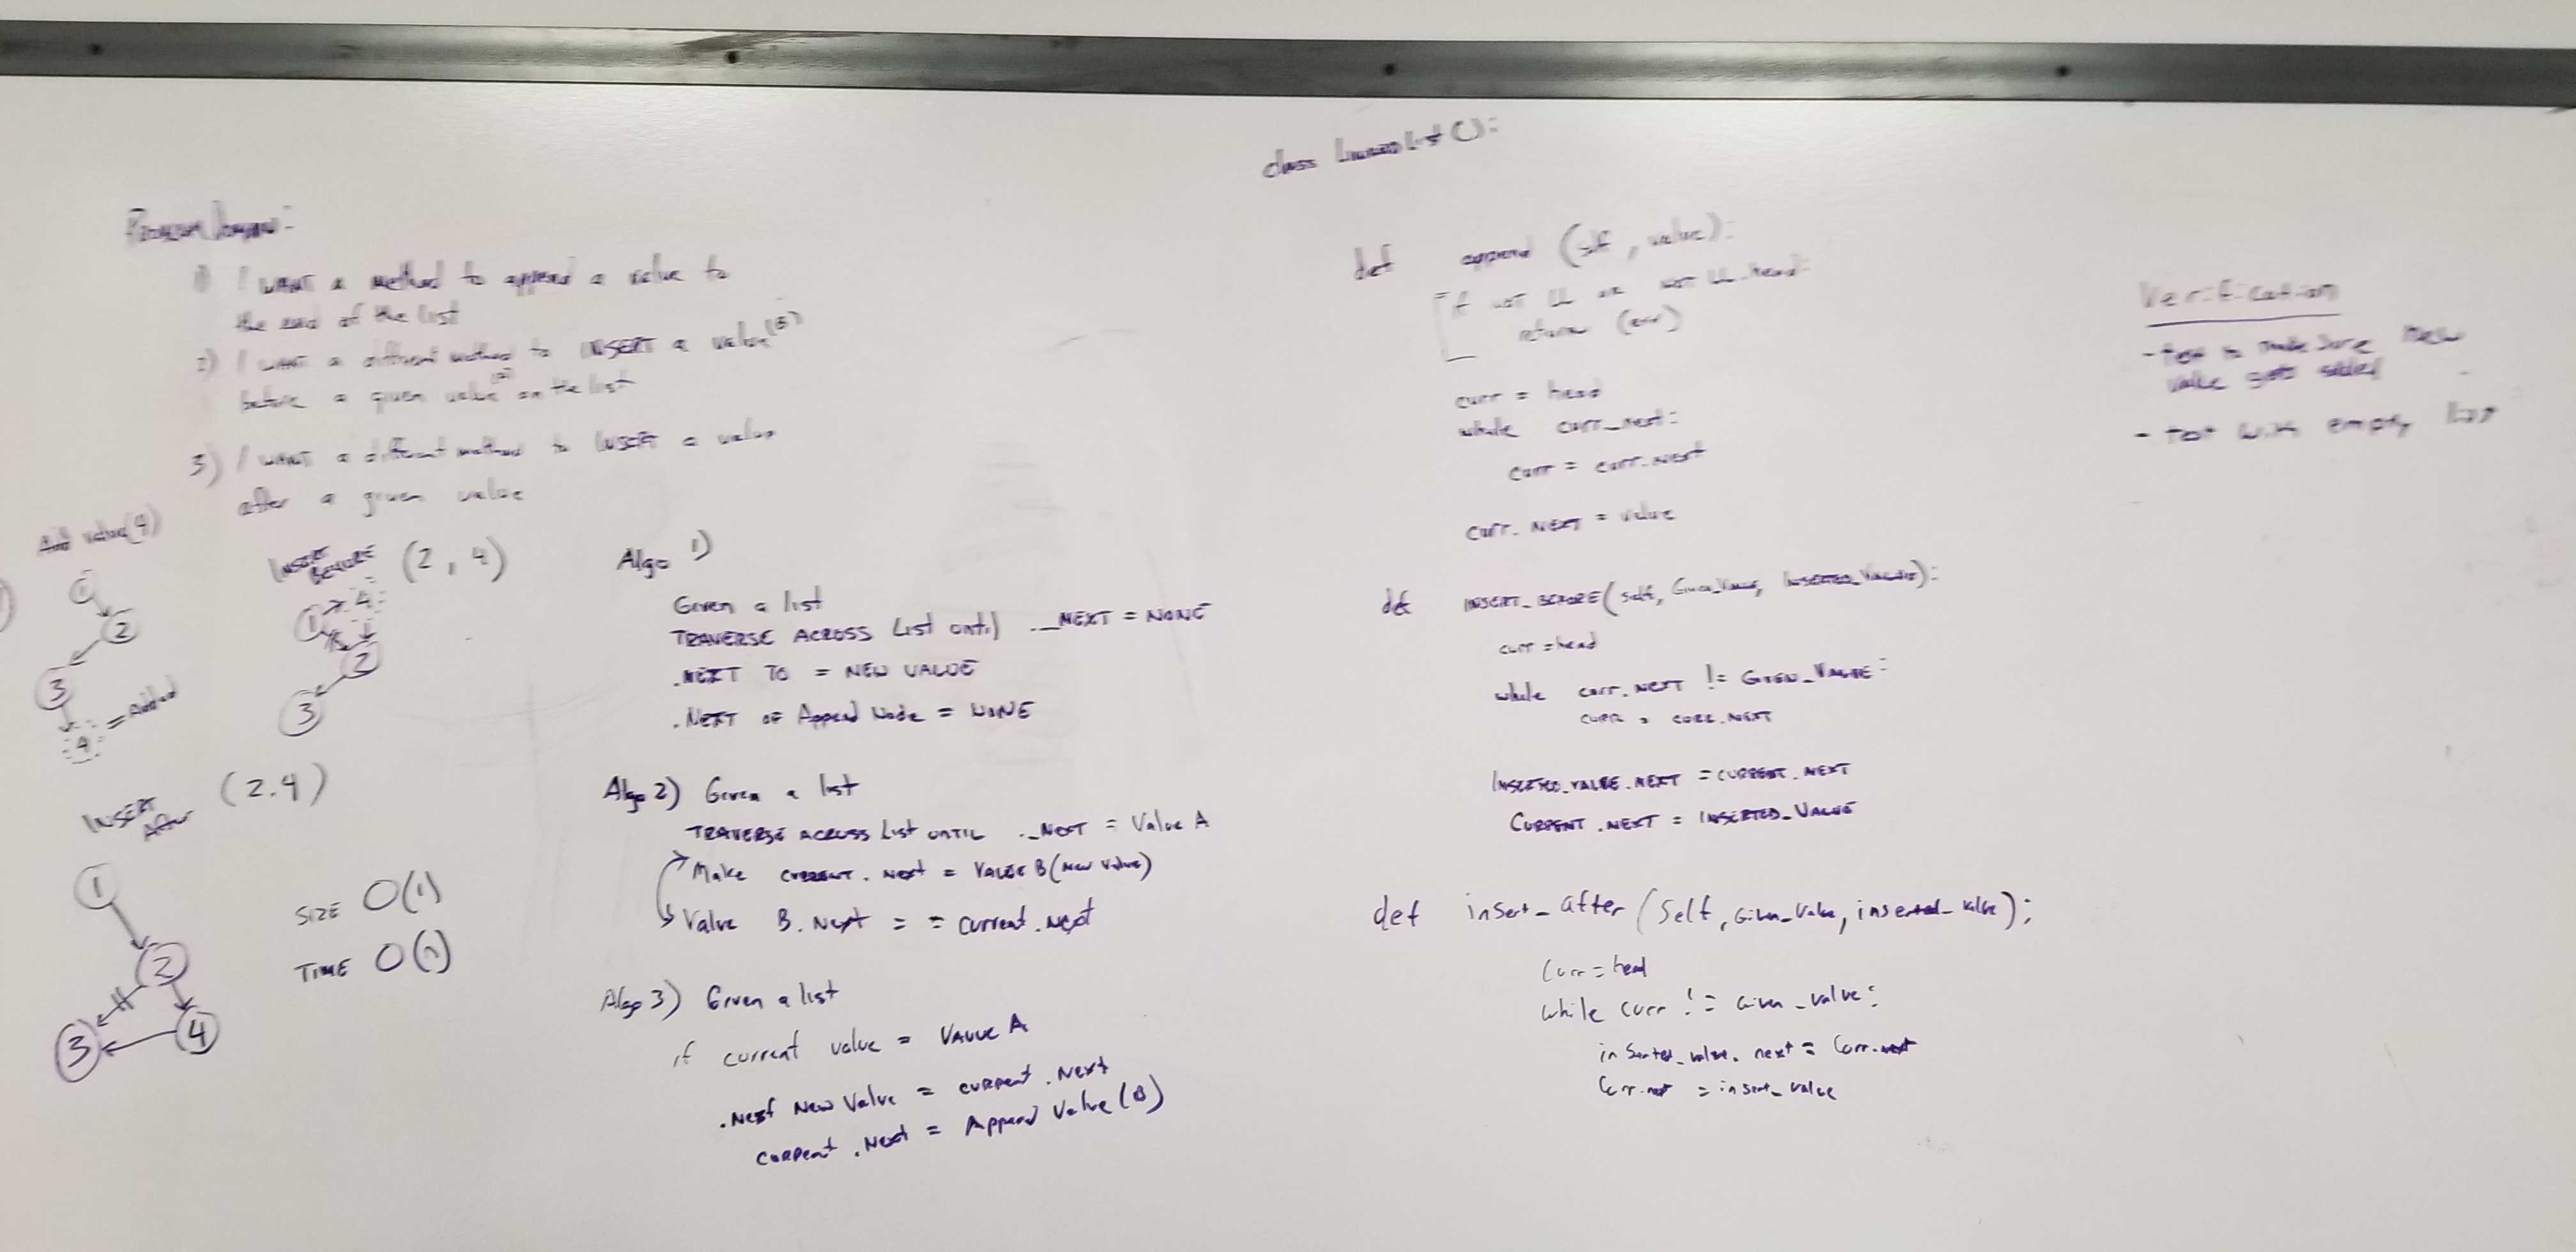 Problem Domain:
1) I WANT a method to append a value to
the end of the list
2) I WANT a different method to INSERT a value (B)
before a given value (A) on the list
3) I WANT a different method to INSERT a value
after a given value
Add value(4)
1
2
3
4 = Added
INSERT
BEFORE (2, 4)
4
1
2
3
INSERT
After (2.4)
1
2
3
4
SIZE O(1)
TIME O(n)
Algo 1)
Given a list
TRAVERSE ACROSS List until ._NEXT = NONE
.NEXT TO = NEW VALUE
.NEXT OF Append Node = NONE
Algo 2) Given a list
TRAVERSE ACROSS List UNTIL ._NEXT = Value A
Make CURRENT. Next = VALUE B (New Value)
Value B. Next = = Current.Next
Algo 3) Given a list
if current value = VALUE A
.Next New Value = CURRENT .Next
CURRENT .Next = Append Value (B)
class LinkedList():
def append (self, value):
if not LL or not LL.head:
return (err)
curr = head
while curr_next:
curr = curr.next
curr. NEXT = value
def INSERT_BEFORE(self, Given_Value, INSERTED_VALUE):
curr = head
while curr.NEXT != GIVEN_VALUE:
CURR = CURR.NEXT
INSERTED_VALUE.NEXT = CURRENT.NEXT
CURRENT.NEXT = INSERTED_VALUE
def insert_after (Self, Given_Value, inserted_value);
Curr = head
while curr != Given_value:
inserted_value. next = Curr.next
Curr.next = insert_value
Verification
- Test to make sure new
value gets added
- Test with empty list